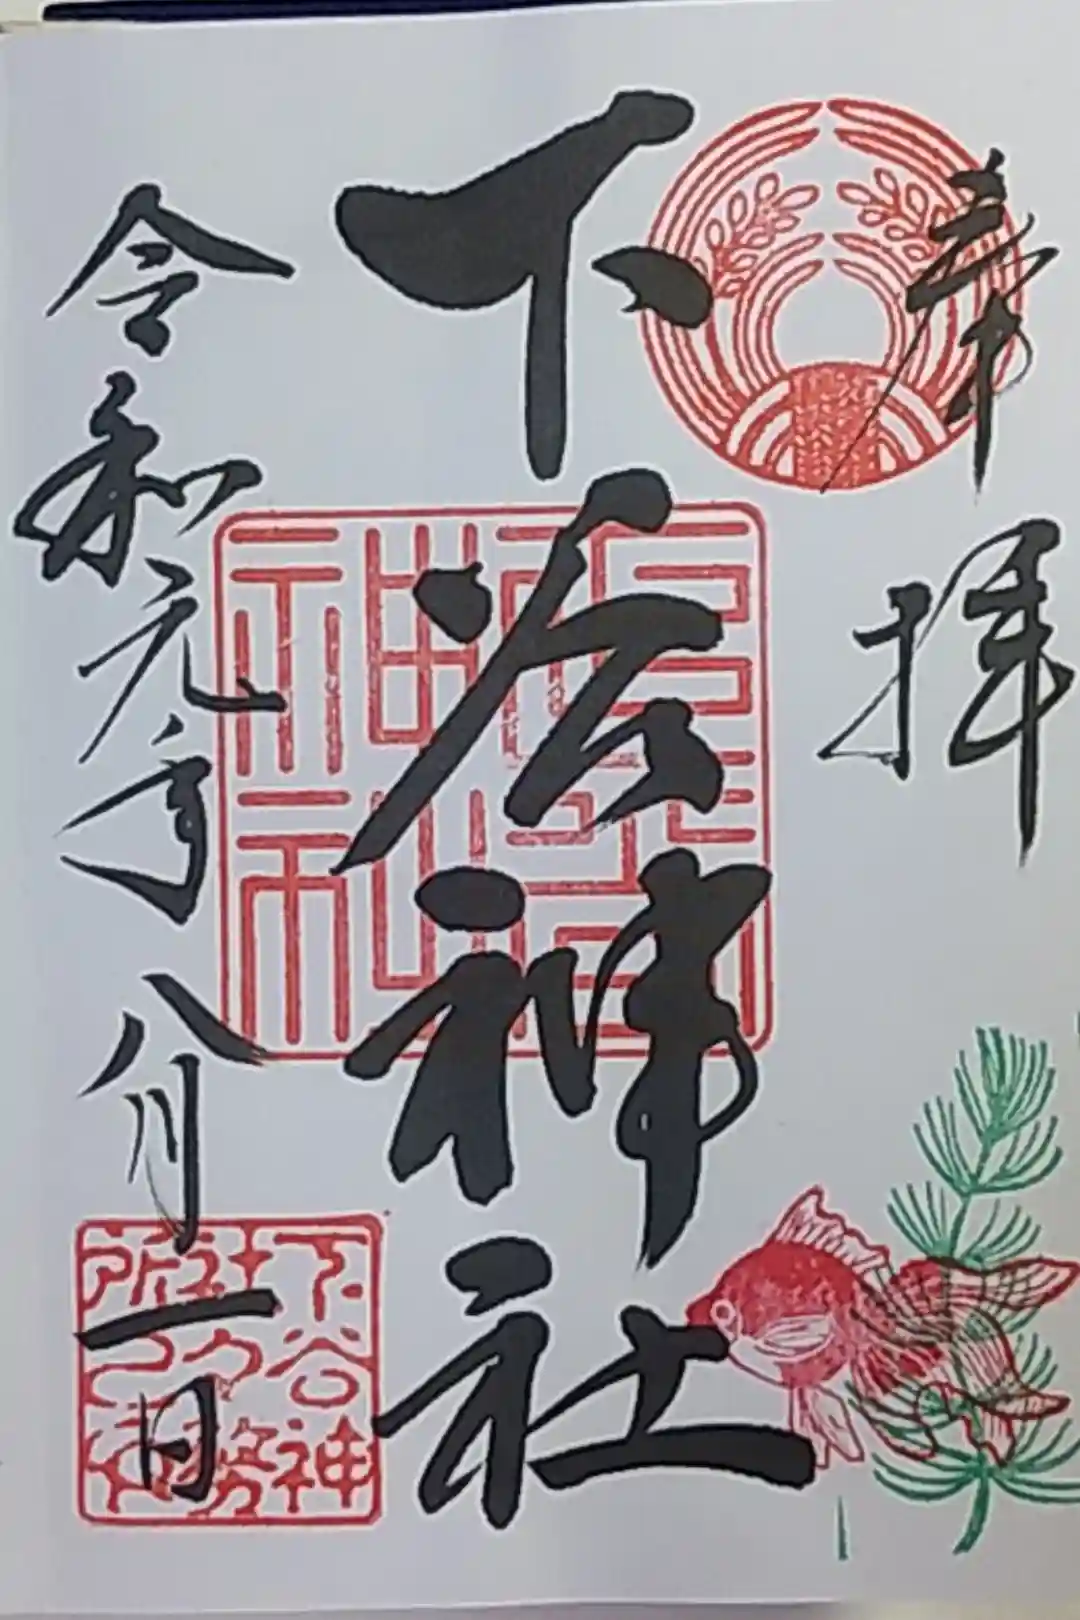 奉拝
下谷神社
令和元年八月一日
下谷神
社々務
所之印